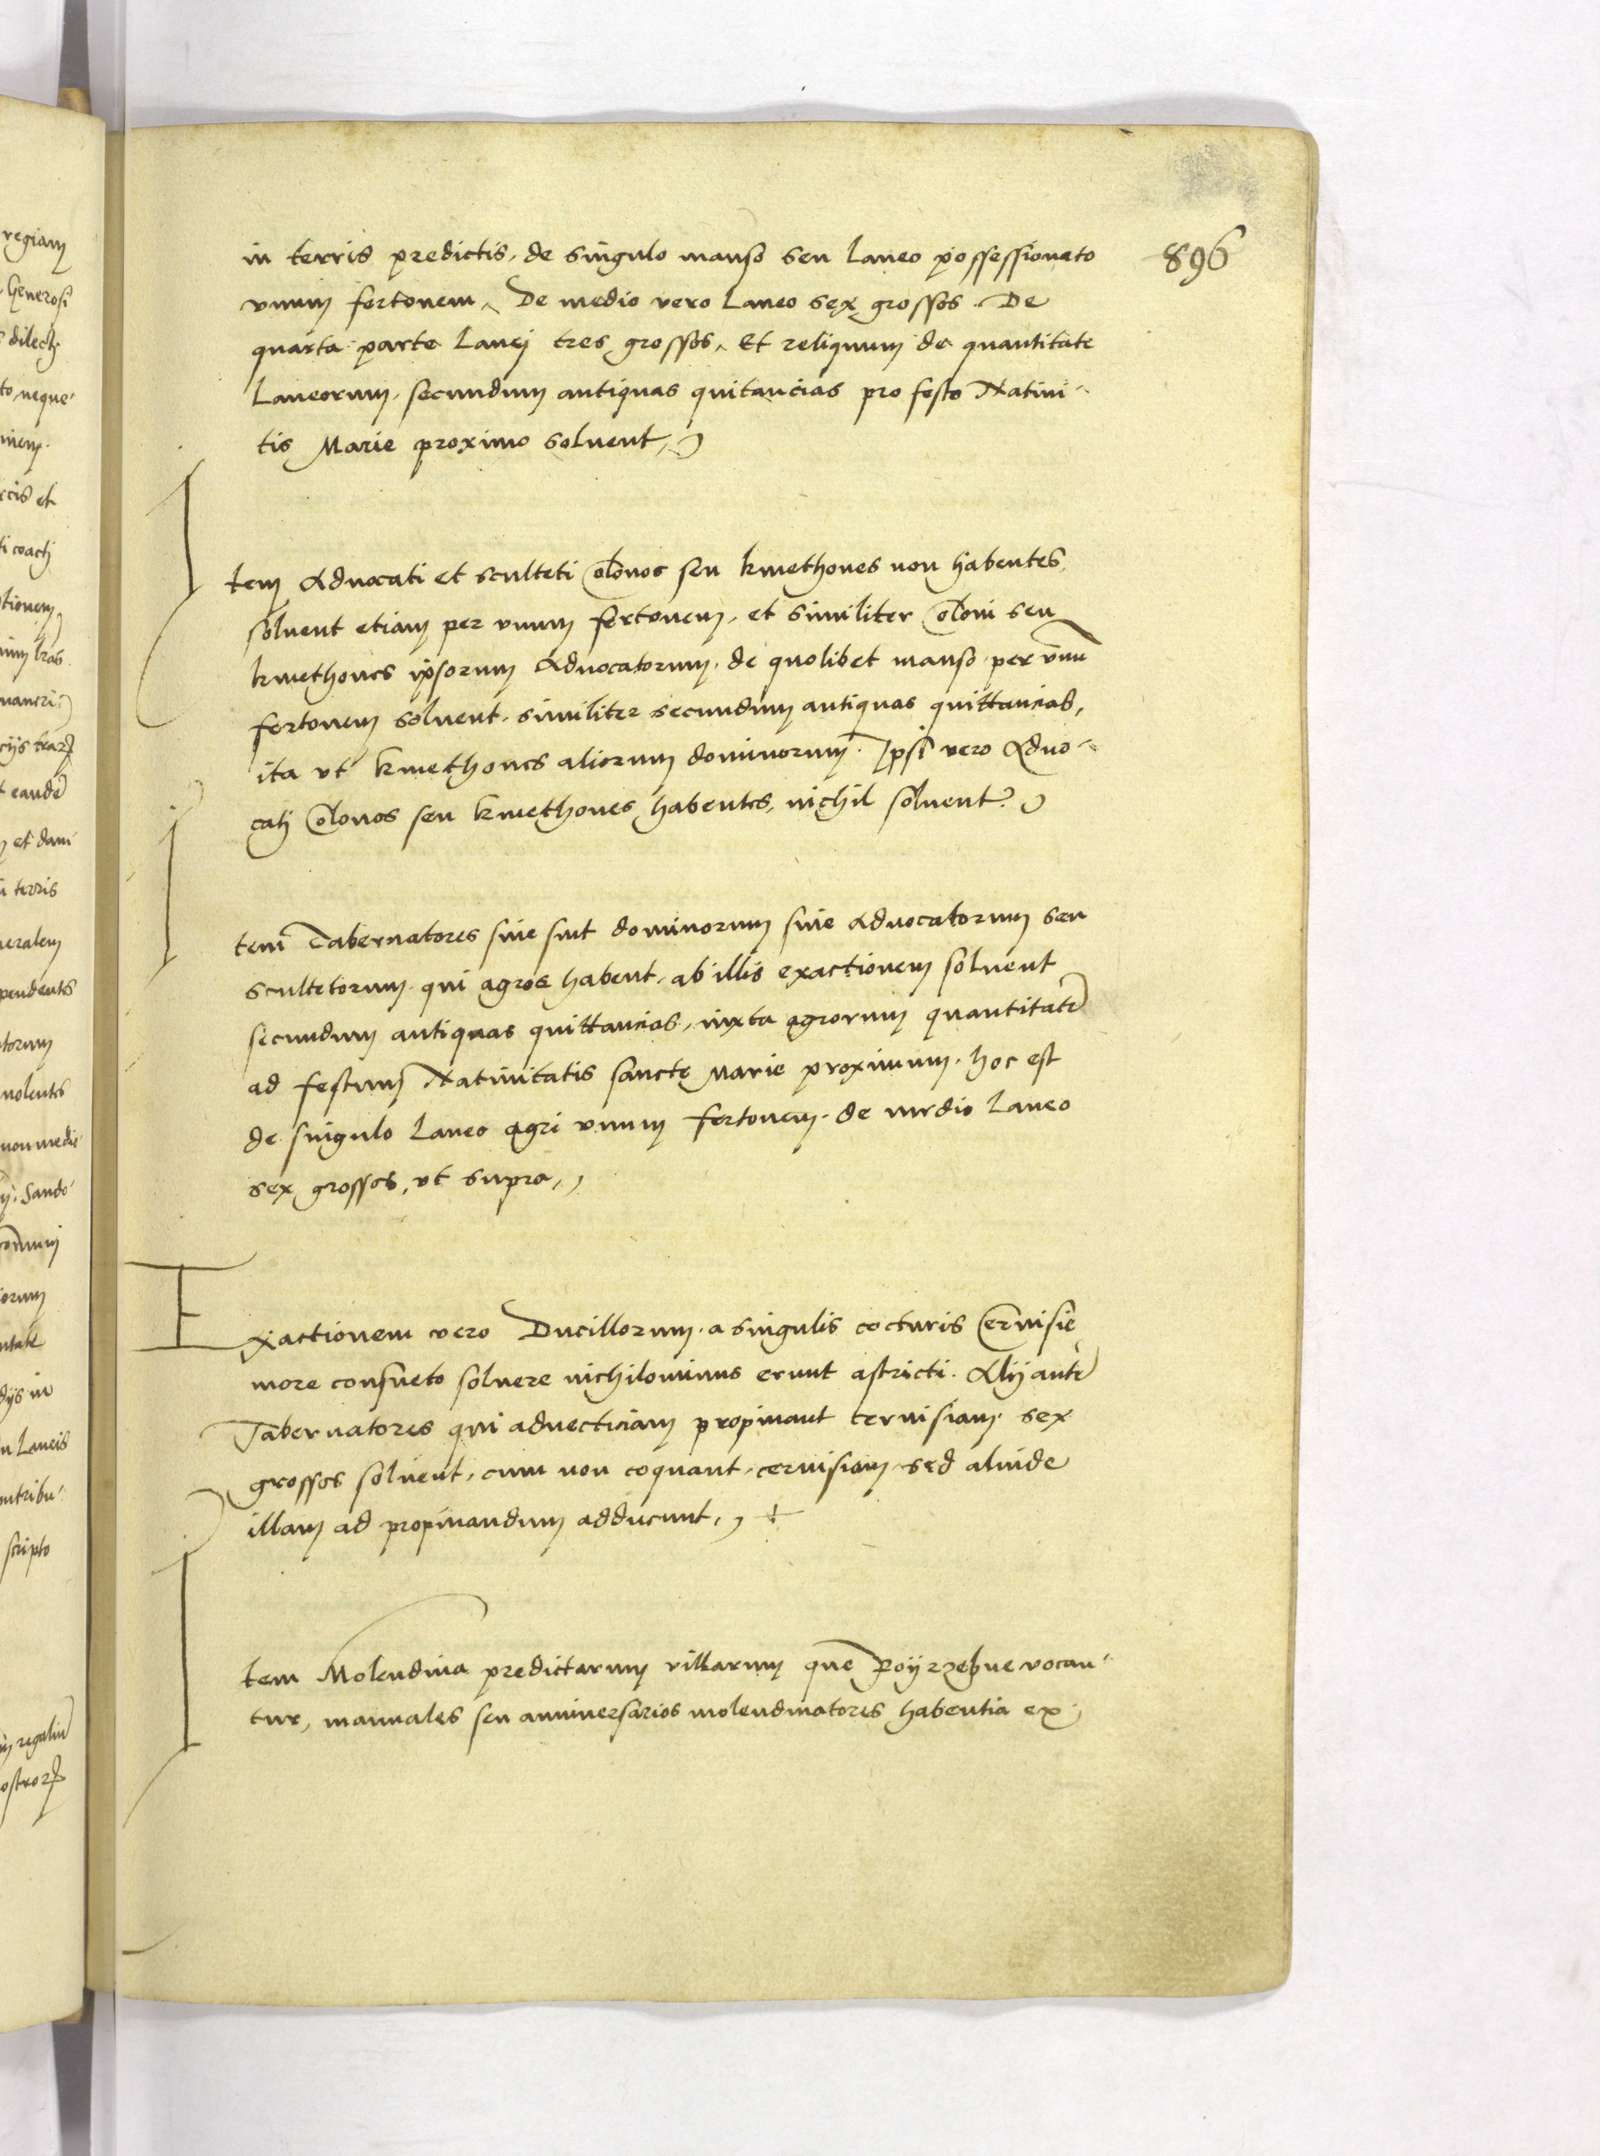 896
in terris predictis, de singulo manso seu Laneo possessionato
vnum fertonem, De medio vero Laneo sex grossos. De
quarta parte Lanei tres grossos, Et reliquum de quantitate
Laneorum, secundum antiquas quitancias pro festo Natiui-
tis Marie proximo soluent,
Item Aduocati et sculteti Colonos seu kmethones non habentes,
soluent etiam per vnum fertonem, et similiter Coloni seu
kmethones ipsorum Aduocatorum, de quolibet manso per vnū
fertonem soluent, similiter secundum antiquas quittancias,
ita vt kmethones aliorum dominorum. Ipsi vero Aduo-
cati Colonos seu kmethones habentes, nichil soluent.
Item Tabernatores siue sint dominorum siue Aduocatorum seu
scultetorum, qui agros habent, ab illis exactionem soluent
secundum antiquas quittancias, iuxta agrorum quantitatē
ad festum Natiuitatis sancte Marie proximum, hoc est
de singulo Laneo agri vnum fertonem, de medio Laneo
sex grossos, vt supra,
Exactionem vero Ducillorum, a singulis cocturis Ceruisie
more consueto soluere nichilominus erunt astricti. Alij autē
Tabernatores qui aduecticiam propinant ceruisiam, sex
grossos soluent, cum non coquant, ceruisiam, sed aliunde
illam ad propinandum adducunt,
Item Molendina predictarum villarum que Poyrzebne vocan-
tur, manuales seu anniuersarios molendinatores habentia ex
regiam
Generosi
dilecti
to, neque
rcis et
ti coacti
tionem
et dam
terris
neralem
torum
volentes
non medie
in
Laneis
ntribu
scripto